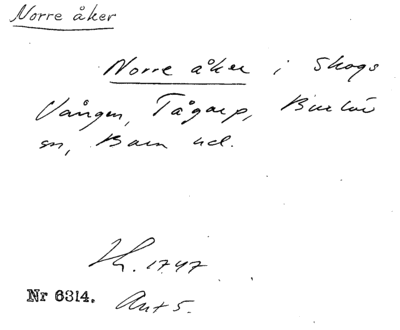 Norre åker
Norre åker i Skogs
Vången, Tågarp, Burlöv
sn, Bara hd.
Lh. 1747
Nr 6314. Akt 5.